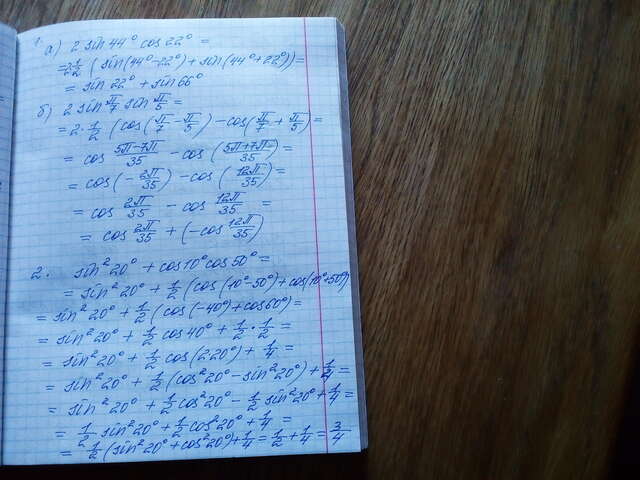 1 а) 2 sin 44° cos 22° =
= 2·1/2 (sin(44°-22°) + sin(44°+22°)) =
= sin 22° + sin 66°
б) 2 sin π/7 sin π/5 =
= 2·1/2 (cos(π/7 - π/5) - cos(π/7 + π/5) =
= cos (5π-7π)/35 - cos ((5π+7π)/35) =
= cos(-2π/35) - cos(12π/35) =
= cos 2π/35 - cos 12π/35 =
= cos 2π/35 + (-cos 12π/35)
2. sin²20° + cos10° cos50° =
= sin²20° + 1/2 (cos(10°-50°) + cos(10°+50°))
= sin²20° + 1/2 (cos(-40°) + cos60°) =
= sin²20° + 1/2 cos40° + 1/2·1/2 =
= sin²20° + 1/2 cos(2·20°) + 1/4 =
= sin²20° + 1/2 (cos²20° - sin²20°) + 1/4 =
= sin²20° + 1/2 cos²20° - 1/2 sin²20° + 1/4 =
= 1/2 sin²20° + 1/2 cos²20° + 1/4 =
= 1/2 (sin²20° + cos²20°) + 1/4 = 1/2 + 1/4 = 3/4